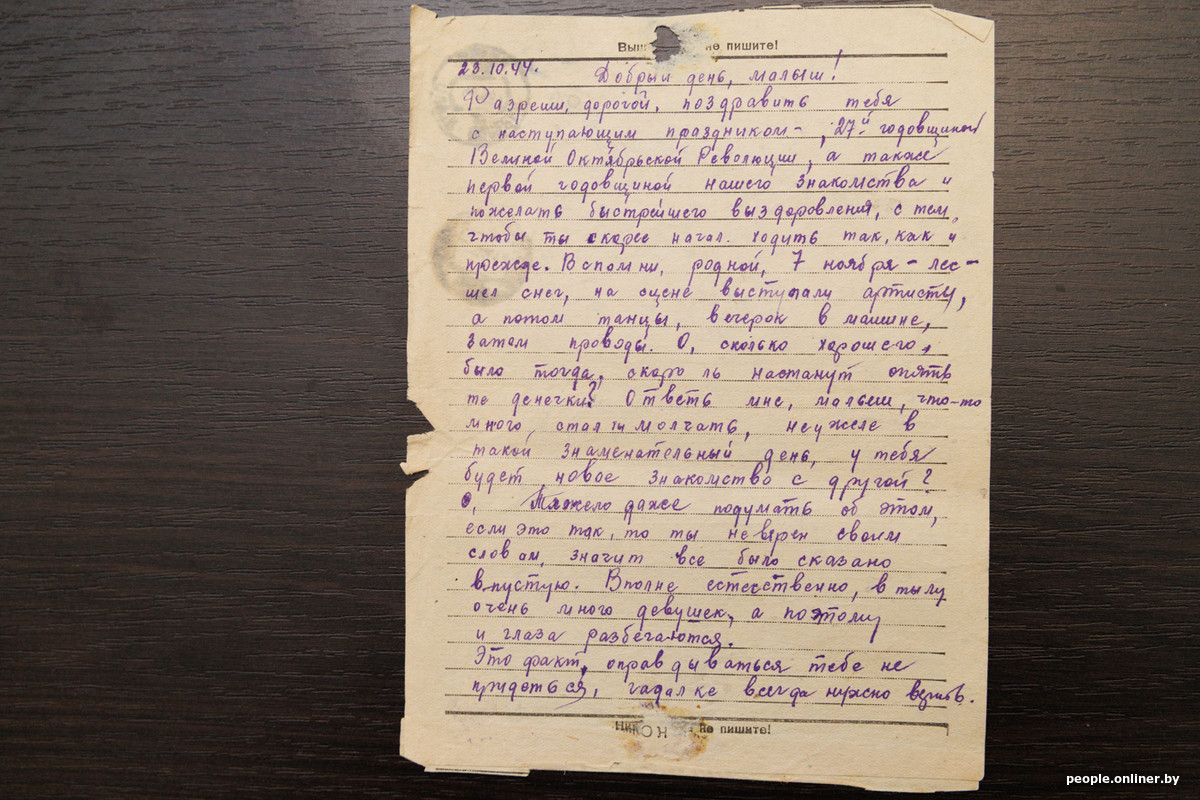 не пишите!
23.10.44. Добрый день, малыш!
Разреши, дорогой, поздравить тебя
с наступающим праздником –, 27й годовщиной
Великой Октябрьской Революции, а также
первой годовщиной нашего знакомства и
пожелать быстрейшего выздоровления, с тем,
чтобы ты скорее начал ходить так, как и
прежде. Вспомни, родной, 7 ноября –
шел снег, на сцене выступали артисты,
а потом танцы, вечерок в машине,
затем проводы. О, сколько хорошего,
было тогда, скоро ль настанут опять
те денечки? Ответь мне, малыш, что-то
много стал ты молчать, неужеле в
такой знаменательный день, у тебя
будет новое знакомство с другой?
О, Тяжело даже подумать об этом,
если это так, то ты неверен своим
словам, значит все было сказано
впустую. Вполне естественно, в тылу
очень много девушек, а поэтому
и глаза разбегаются.
Это факт, оправдываться тебе не
придеться, гадалке всегда нужно верить.
не пишите!
people.onliner.by